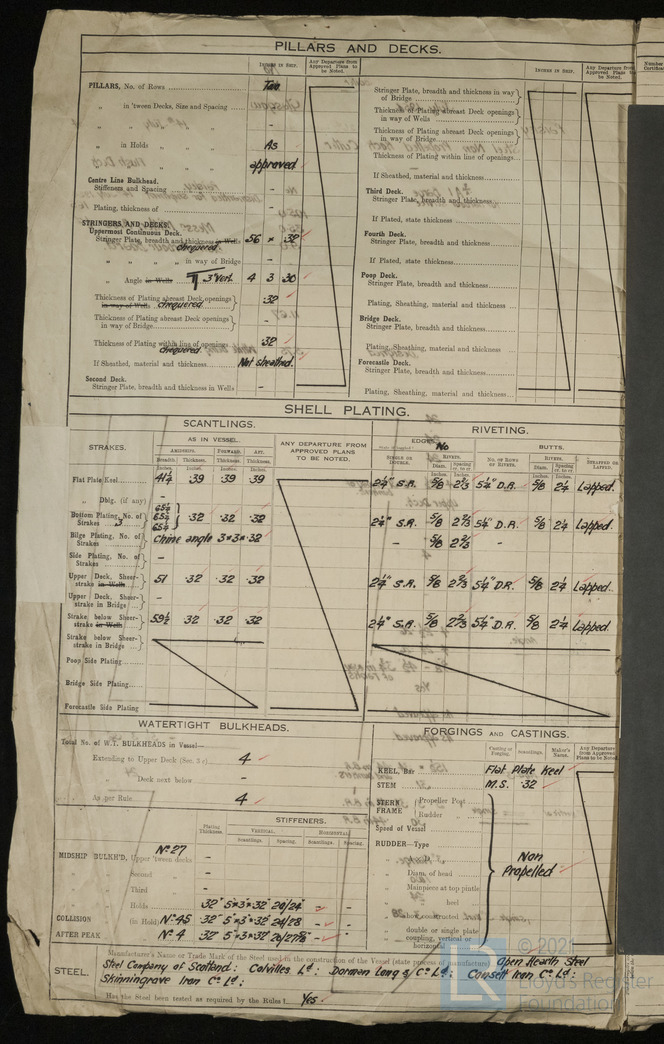 PILLARS AND DECKS.
INCHES IN SHIP.
Any Departure from Approved Plans to be Noted.
PILLARS, No. of Rows Two
in 'tween Decks, Size and Spacing -
" " " -
in Holds " " As
" " " approved
Centre Line Bulkhead.
Stiffeners and Spacing -
Plating, thickness of -
STRINGERS AND DECKS.
Uppermost Continuous Deck.
Stringer Plate, breadth and thickness in Wells 56 × .32
chequered.
" " " in way of Bridge -
" Angle in Wells 3" Vert. 4 3 .30
Thickness of Plating abreast Deck openings in way of Wells chequered .32
Thickness of Plating abreast Deck openings in way of Bridge -
Thickness of Plating within line of openings .32
chequered.
If Sheathed, material and thickness Not sheathed.
Second Deck.
Stringer Plate, breadth and thickness in Wells -
INCHES IN SHIP.
Any Departure from Approved Plans to be Noted.
Stringer Plate, breadth and thickness in way of Bridge
Thickness of Plating abreast Deck openings in way of Wells
Thickness of Plating abreast Deck openings in way of Bridge
Thickness of Plating within line of openings
If Sheathed, material and thickness
Third Deck.
Stringer Plate, breadth and thickness
If Plated, state thickness
Fourth Deck.
Stringer Plate, breadth and thickness
If Plated, state thickness
Poop Deck.
Stringer Plate, breadth and thickness
Plating, Sheathing, material and thickness
Bridge Deck.
Stringer Plate, breadth and thickness
Plating, Sheathing, material and thickness
Forecastle Deck.
Stringer Plate, breadth and thickness
Plating, Sheathing, material and thickness
SHELL PLATING.
SCANTLINGS.
RIVETING.
STRAKES.
AS IN VESSEL.
AMIDSHIPS. FORWARD. AFT.
Breadth. Thickness. Thickness. Thickness.
ANY DEPARTURE FROM APPROVED PLANS TO BE NOTED.
EDGES. No
BUTTS.
SINGLE OR DOUBLE. RIVETS. Diam. Spacing cr. to cr.
NO. OF ROWS OF RIVETS. RIVETS. Diam. Spacing cr. to cr. STRAPPED OR LAPPED.
Flat Plate Keel 41¼ .39 .39 .39 2¼" S.R. 5/8 2⅔ 5¼" D.R. 5/8 2¼ Lapped.
" Dblg. (if any) -
Bottom Plating, No. of Strakes 3 65¼ 65¼ 65¼ .32 .32 .32 2¼" S.R. 5/8 2⅔ 5¼" D.R. 5/8 2¼ Lapped.
Bilge Plating, No. of Strakes Chine angle 3×3×.32 - 5/8 2⅔ -
Side Plating, No. of Strakes -
Upper Deck, Sheerstrake in Wells 51 .32 .32 .32 2¼" S.R. 5/8 2⅔ 5¼" D.R. 5/8 2¼ Lapped.
Upper Deck, Sheerstrake in Bridge -
Strake below Sheerstrake in Wells 59½ .32 .32 .32 2¼" S.R. 5/8 2⅔ 5¼" D.R. 5/8 2¼ Lapped.
Strake below Sheerstrake in Bridge
Poop Side Plating
Bridge Side Plating
Forecastle Side Plating
WATERTIGHT BULKHEADS.
Total No. of W.T. BULKHEADS in Vessel—
Extending to Upper Deck (Sec. 3 c) 4
" Deck next below -
As per Rule 4
STIFFENERS.
Plating Thickness. VERTICAL. HORIZONTAL.
Scantlings. Spacing. Scantlings. Spacing.
MIDSHIP BULKH'D, Upper 'tween decks No 27 -
" " Second " -
" " Third " -
" " Holds .32" 5"×3"×.32" 20/24"
COLLISION " (in Hold) No 45 .32" 5"×3"×.32" 24/28 -
AFTER PEAK " No 4 .32" 5"×3"×.32" -
FORGINGS AND CASTINGS.
Casting or Forging. Scantlings. Maker's Name. Any Departure from Approved Plans to be Noted.
KEEL, Bar Flat Plate Keel
STEM M.S. .32
STERN FRAME Propeller Post
Rudder "
Speed of Vessel
RUDDER—Type
" Diam. of head
" Mainpiece at top pintle
" " heel
" how constructed
" double or single plate
" coupling, vertical or horizontal
Non Propelled
STEEL. Manufacturer's Name or Trade Mark of the Steel used in the construction of the Vessel (state process of manufacture) Open Hearth Steel
Steel Company of Scotland: Colvilles Ld: Dorman Long & Co Ld: Consett Iron Co Ld:
Skinningrove Iron Co Ld:
Has the Steel been tested as required by the Rules? Yes
© 2021
LR
Lloyd's Register
Foundation